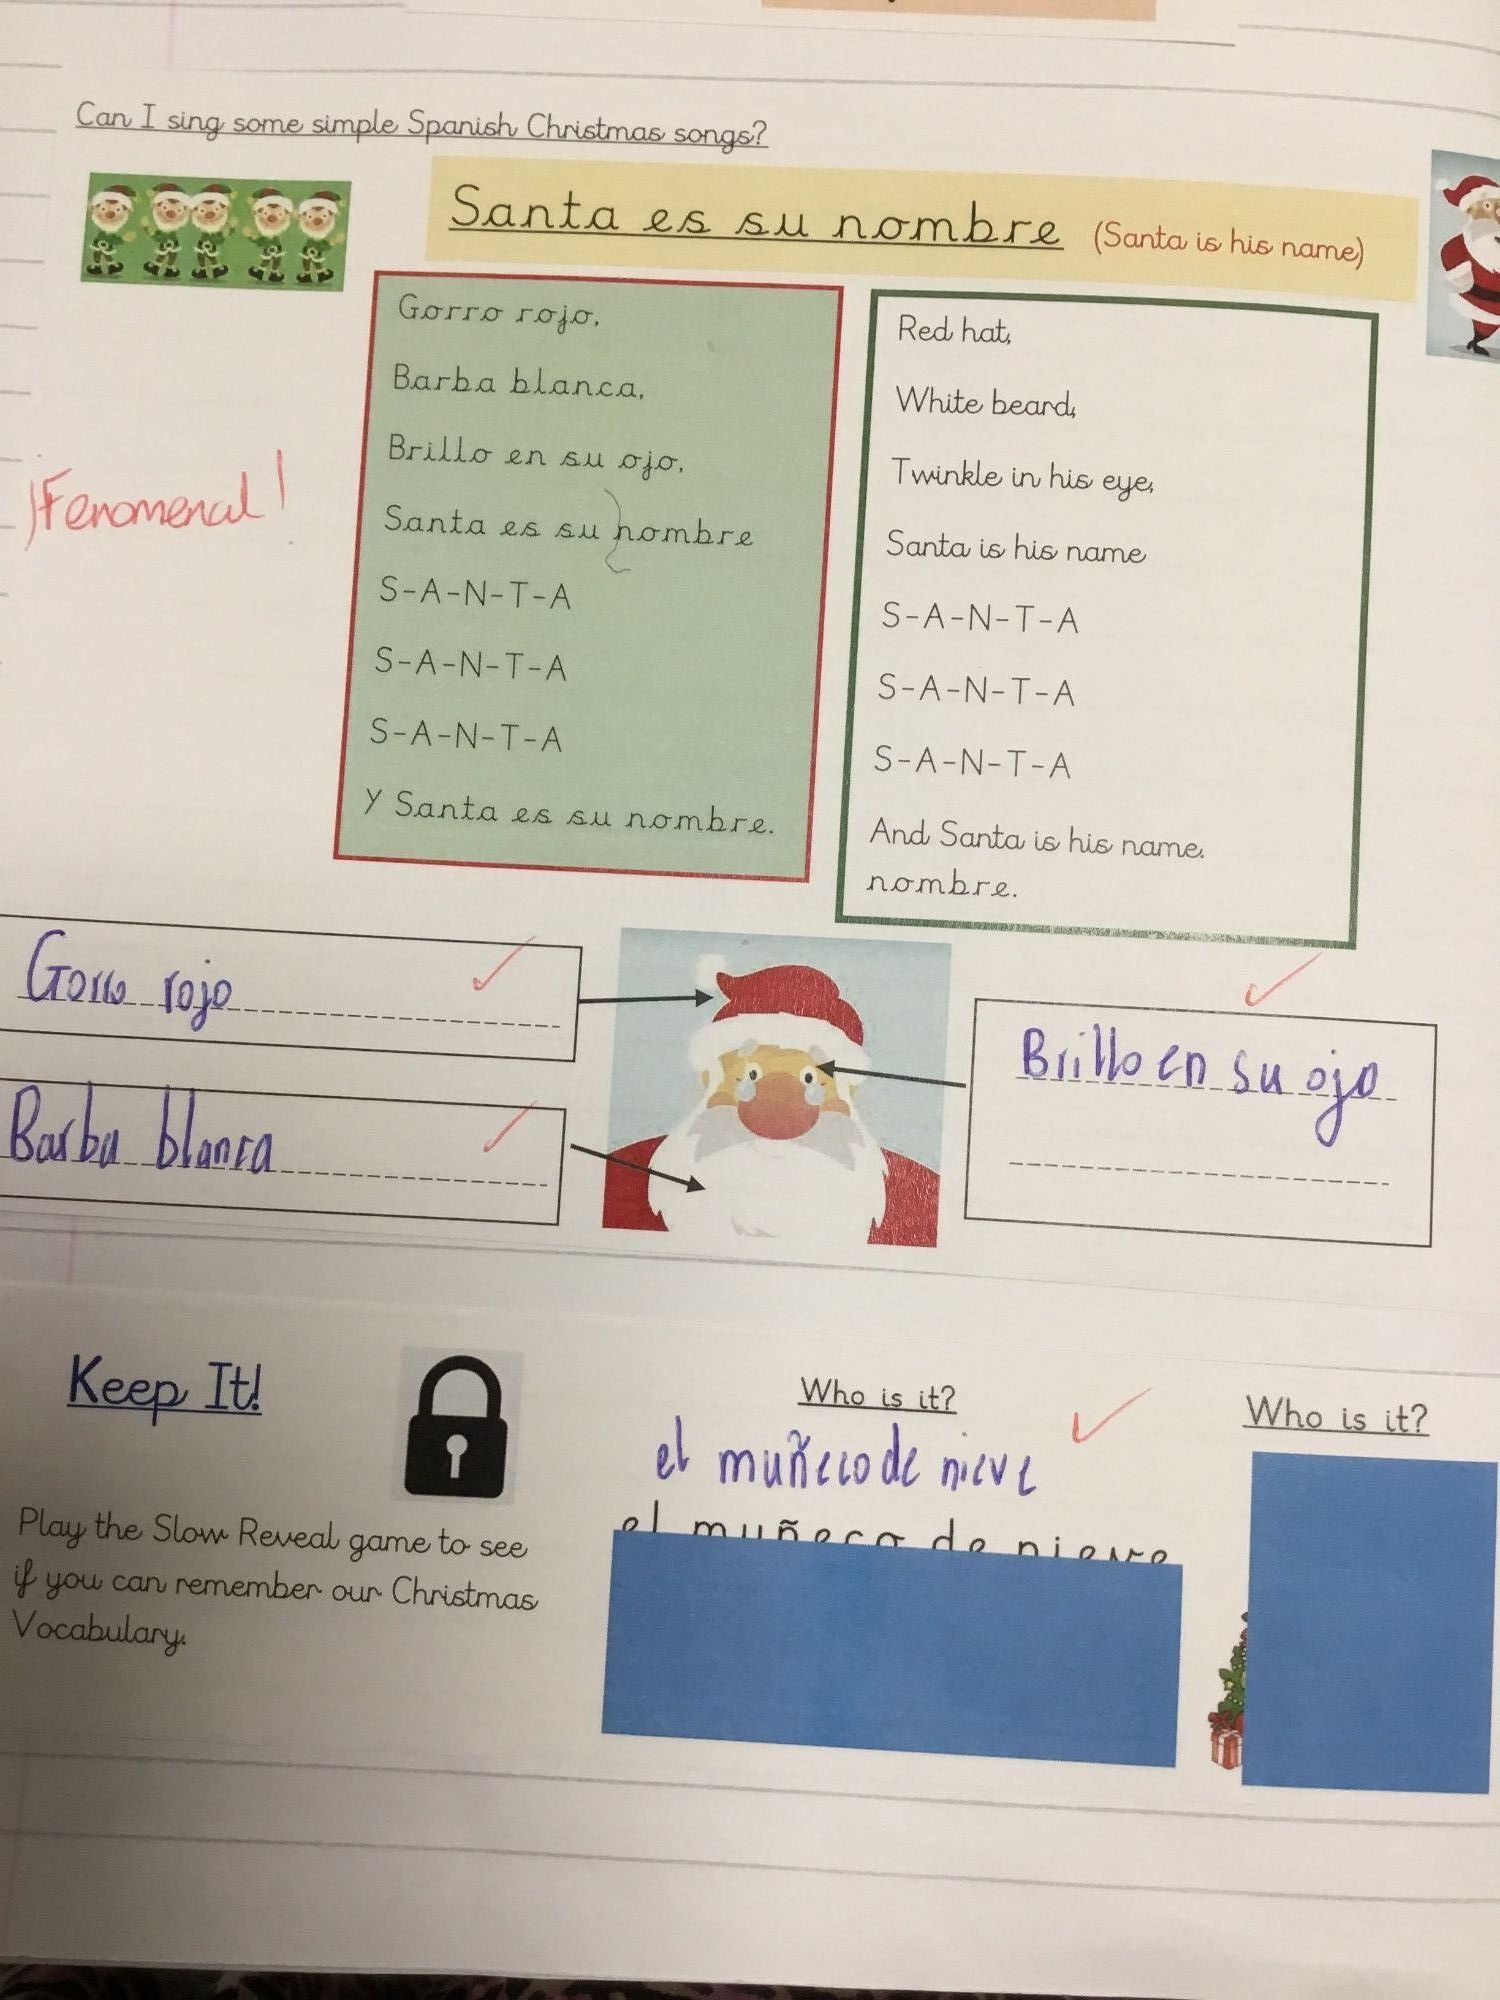 Can I sing some simple Spanish Christmas songs?
Santa es su nombre (Santa is his name)
Gorro rojo,
Barba blanca,
Brillo en su ojo,
Santa es su nombre
S-A-N-T-A
S-A-N-T-A
S-A-N-T-A
Y Santa es su nombre.
Red hat,
White beard,
Twinkle in his eye,
Santa is his name
S-A-N-T-A
S-A-N-T-A
S-A-N-T-A
And Santa is his name.
nombre.
¡Fenomenal!
Gorro rojo
Barba blanca
Brillo en su ojo
Keep It!
Play the Slow Reveal game to see
if you can remember our Christmas
Vocabulary.
Who is it?
el muñeco de nieve
el muñeco de nieve
Who is it?